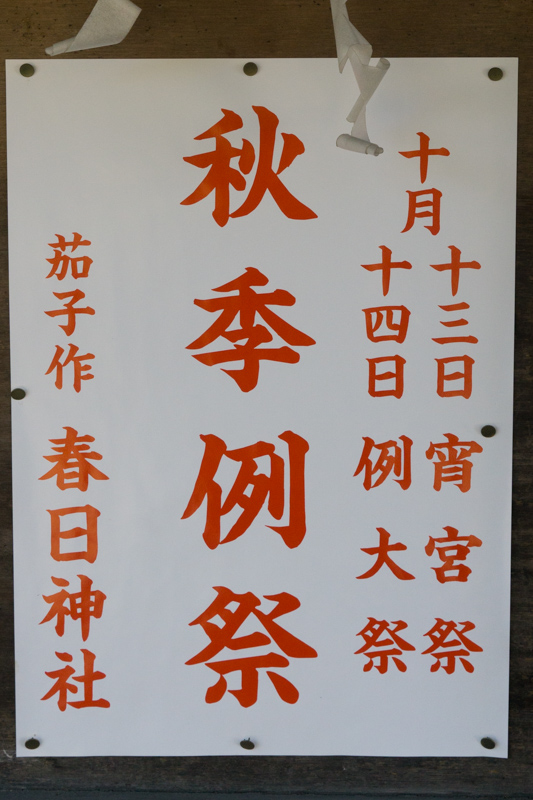 十月
十三日 宵宮祭
十四日 例大祭
秋季例祭
茄子作 春日神社